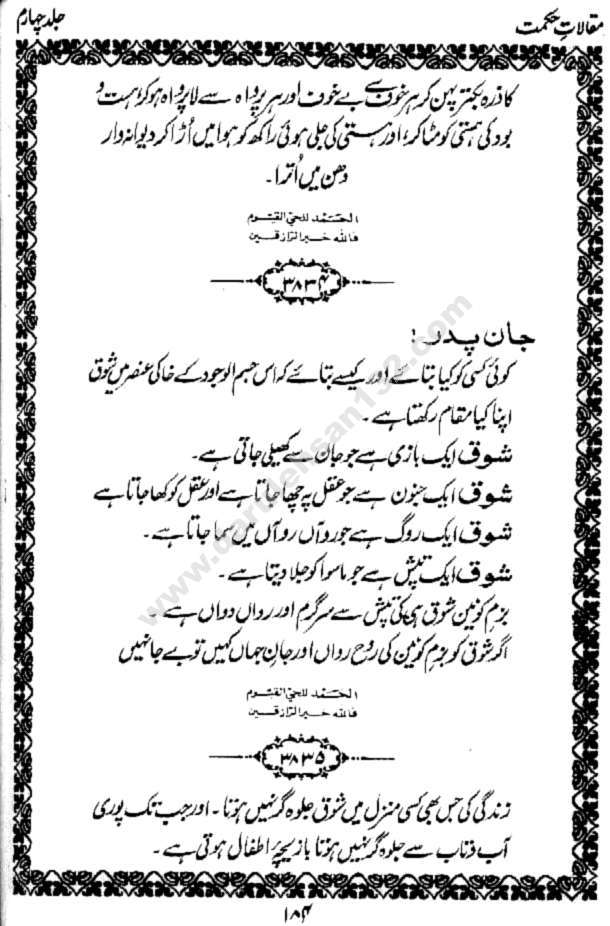 مقالاتِ حکمت
جلد چہارم
کا ذرہ بکتر پہن کر ہر خوف سے بے خوف اور ہر پرواہ سے لاپرواہ ہو کر ہست و
بود کی ہستی کو مٹا کر، اور ہستی کی جلی ہوئی راکھ کو ہوا میں اُڑا کر دیوانہ وار
دھن میں اُترا۔
الحمد للحی القیوم
فاللہ خیر الرازقین
۳۸۳۴
جان پدر :
کوئی کسی کو کیا بتائے اور کیسے بتائے کہ اس جسم الوجود کے خاکی عنصر میں شوق
اپنا کیا مقام رکھتا ہے۔
شوق ایک بازی ہے جو جان سے کھیلی جاتی ہے۔
شوق ایک جنون ہے جو عقل پہ چھا جاتا ہے اور عقل کو کھا جاتا ہے
شوق ایک روگ ہے جو روآں روآں میں سما جاتا ہے۔
شوق ایک تپش ہے جو ماسوا کو جلا دیتا ہے۔
بزمِ کونین شوق ہی کی تپش سے سرگرم اور رواں دواں ہے۔
اگر شوق کو بزمِ کونین کی روحِ رواں اور جانِ جہاں کہیں تو بے جا نہیں
الحمد للحی القیوم
فاللہ خیر الرازقین
۳۸۳۵
زندگی کی جس بھی کسی منزل میں شوق جلوہ گر نہیں ہوتا۔ اور جب تک پوری
آب و تاب سے جلوہ گر نہیں ہوتا بازیچۂ اطفال ہوتی ہے۔
۱۸۴
www.darulehsan132.com